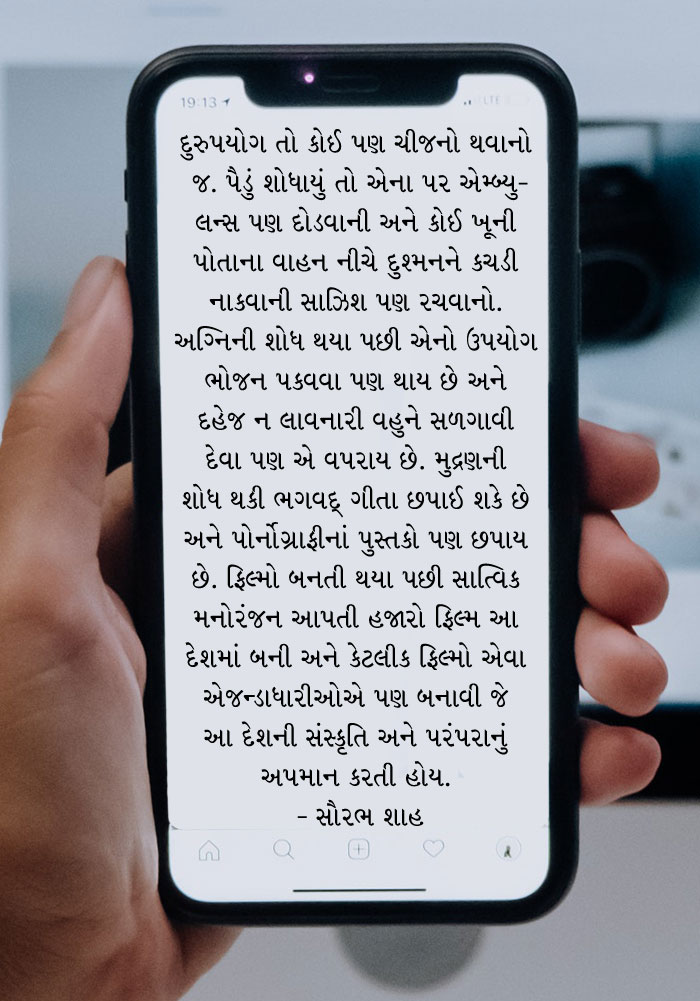 19:13
LTE
દુરુપયોગ તો કોઈ પણ ચીજનો થવાનો
જ. પૈડું શોધાયું તો એના પર એમ્બ્યુ-
લન્સ પણ દોડવાની અને કોઈ ખૂની
પોતાના વાહન નીચે દુશ્મનને કચડી
નાકવાની સાઝિશ પણ રચવાનો.
અગ્નિની શોધ થયા પછી એનો ઉપયોગ
ભોજન પકવવા પણ થાય છે અને
દહેજ ન લાવનારી વહુને સળગાવી
દેવા પણ એ વપરાય છે. મુદ્રણની
શોધ થકી ભગવદ્ ગીતા છપાઈ શકે છે
અને પોર્નોગ્રાફીનાં પુસ્તકો પણ છપાય
છે. ફિલ્મો બનતી થયા પછી સાત્વિક
મનોરંજન આપતી હજારો ફિલ્મ આ
દેશમાં બની અને કેટલીક ફિલ્મો એવા
એજન્ડાધારીઓએ પણ બનાવી જે
આ દેશની સંસ્કૃતિ અને પરંપરાનું
અપમાન કરતી હોય.
- સૌરભ શાહ